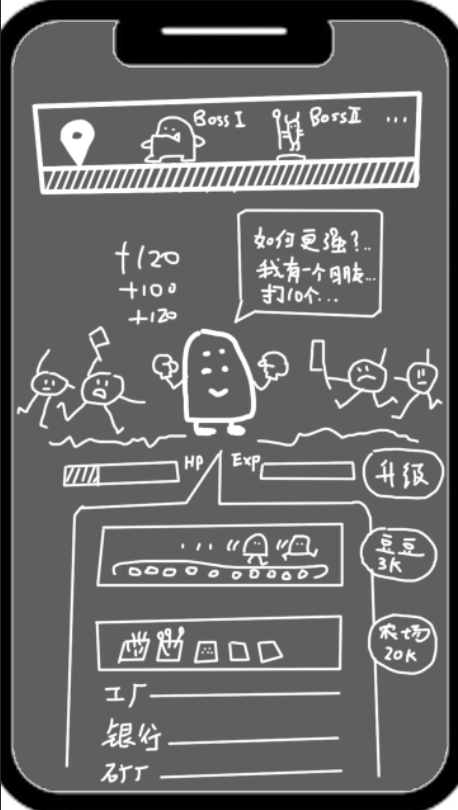 Boss I
Boss II
...
+120
+100
+120
如何更强?..
我有一个朋友...
打10个...
HP
Exp
升级
豆豆
3K
农场
20K
工厂
银行
矿厂